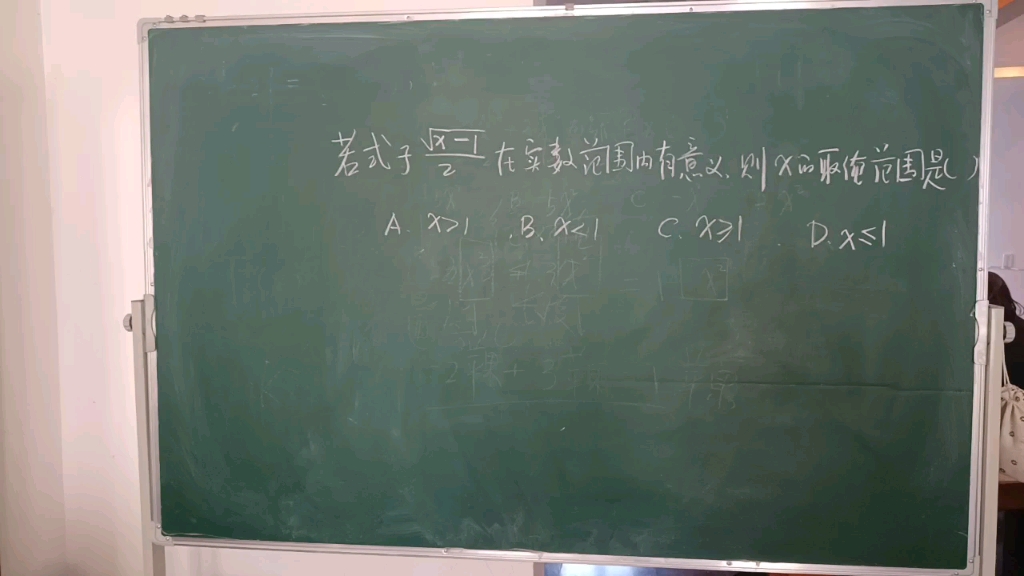 若式子 √(x-1)/2 在实数范围内有意义,则x的取值范围是( )
A. x>1 B. x<1 C. x≥1 D. x≤1